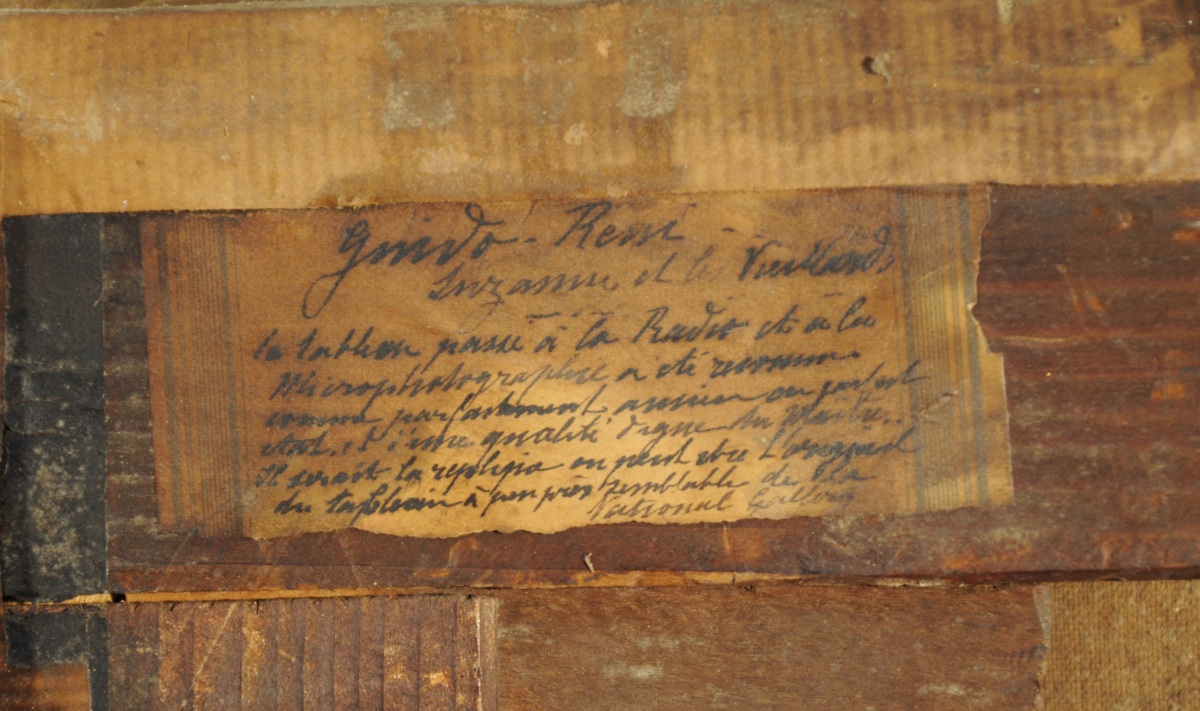 Guido - Reni
Suzanne et les Vieillards
Le tableau passé à la Radio et à la
Microphotographie a été reconnu
comme parfaitement ancien en parfait
état, et d'une qualité digne du Maître.
Il serait la replica ou peut etre l'original
du tableau à peu près semblable de la
National Gallery